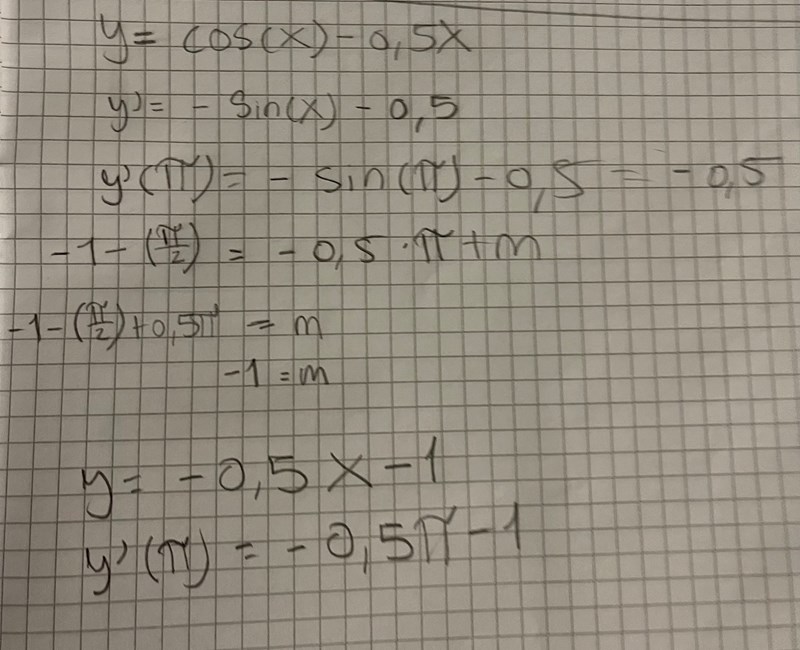 y = cos(x) - 0,5x
y' = - sin(x) - 0,5
y'(π) = - sin(π) - 0,5 = -0,5
-1 - (π/2) = - 0,5 · π + m
-1 - (π/2) + 0,5π = m
-1 = m
y = -0,5x - 1
y'(π) = -0,5π - 1